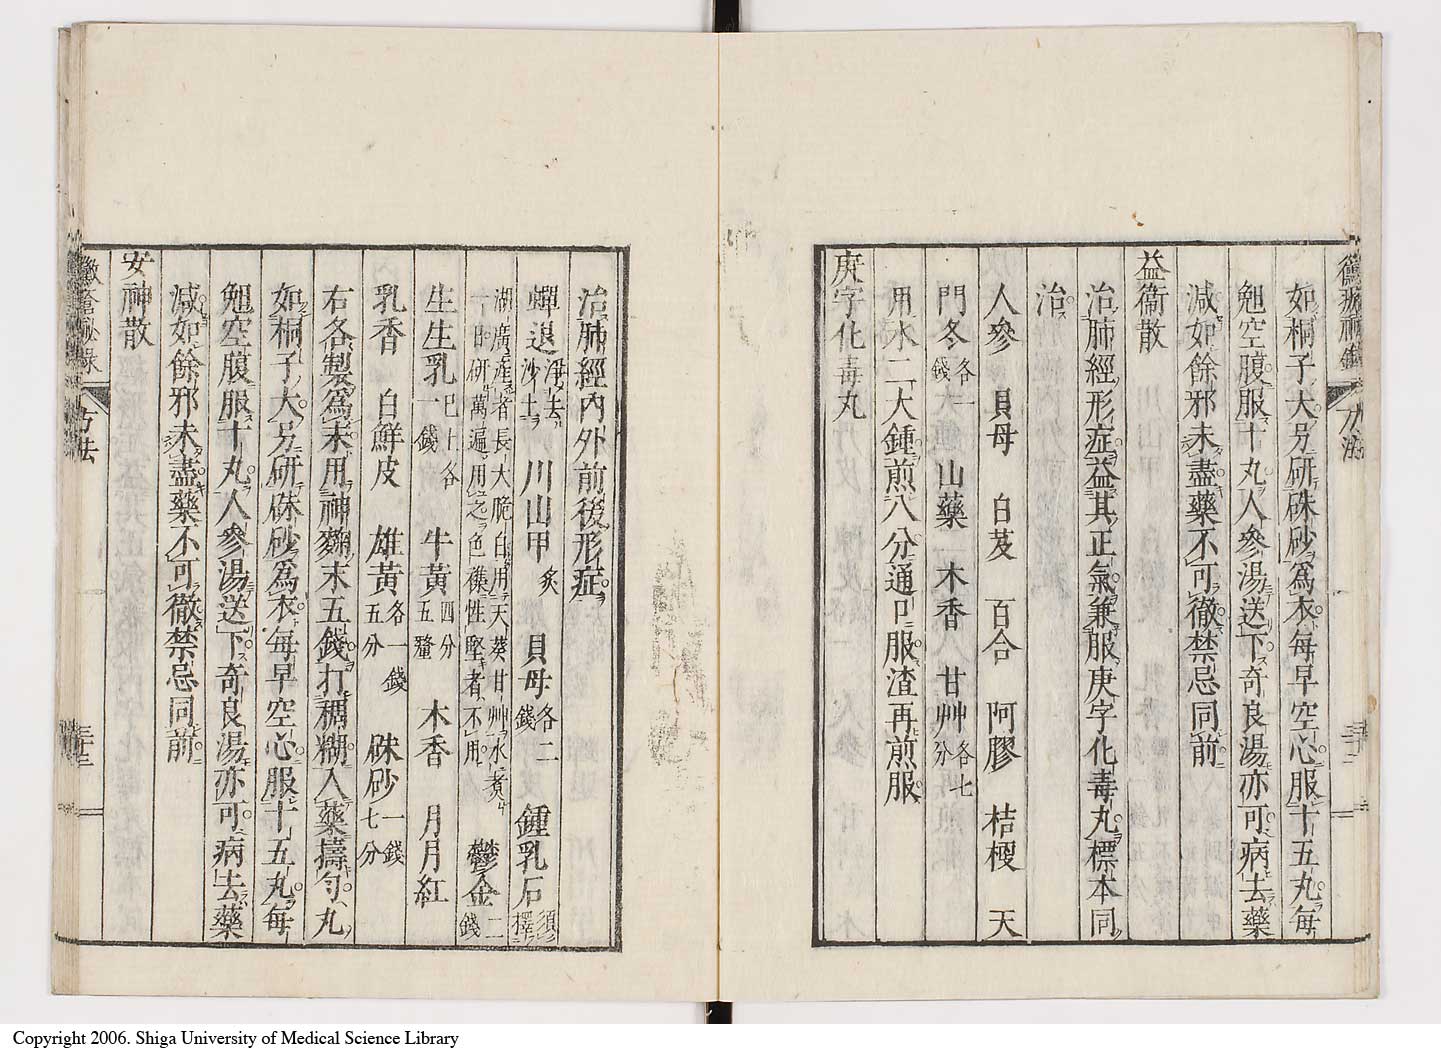 如桐子大另研硃砂爲衣每早空心服十五丸每
勉空腹服十丸人參湯送下奇良湯亦可病去藥
減如餘邪未盡藥不可徹禁忌同前
益衞散
治肺經形症益其正氣兼服庚字化毒丸標本同
治
人參 貝母 白芨 百合 阿膠 桔梗 天
門冬各一錢 山藥 木香 甘艸各七分
用水二大鍾煎八分通口服渣再煎服
庚字化毒丸
治肺經內外前後形症
蟬退淨去沙土 川山甲炙 貝母各二錢 鍾乳石須擇
湖廣產者長大脆白用天葵甘艸水煮
一日研萬遍用之色襍性堅者不用 鬱金二錢
生生乳巳上各一錢 牛黃四分五釐 木香 月月紅
乳香 白鮮皮 雄黃各一錢五分 硃砂一錢七分
右各製爲末用神麴末五錢打稠糊入藥擣勻丸
如桐子大另研硃砂爲衣每早空心服十五丸每
勉空腹服十丸人參湯送下奇良湯亦可病去藥
減如餘邪未盡藥不可徹禁忌同前
安神散
黴瘡秘錄
方法
三十三
Copyright 2006. Shiga University of Medical Science Library